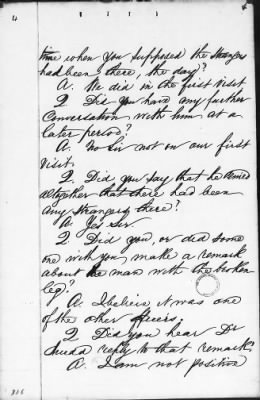 4
time when you supposed the strangers
had been there, the day?
A. We did in the first visit
Q Did you have any further
Conversation with him at a
later period?
A. No sir not on our first
visit.
Q. Did you say that he denied
altogether that there had been
any strangers there?
A. Yes sir
Q. Did you, or did some
one with you make a remark
about the man with the broken
leg?
A. I believe it was one
of the other officers.
Q Did you hear Dr
Mudd reply to that remark
A. I am not positive